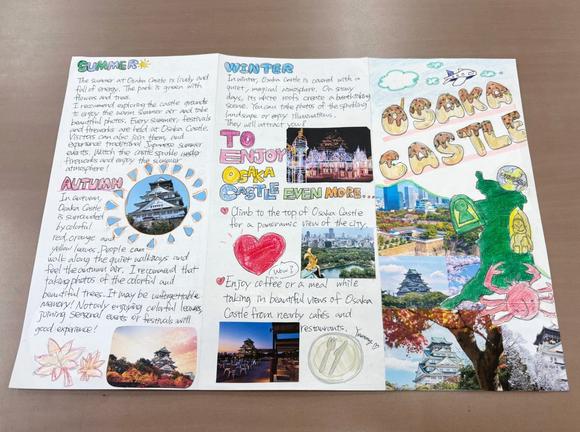 SUMMER
The summer at Osaka Castle is lively and
full of energy. The park is green with
flowers and trees.
I recommend exploring the castle grounds
to enjoy the warm summer air and take
beautiful photos. Every summer, festivals
and fireworks are held at Osaka Castle.
Visitors can also join them, and
experience traditional Japanese summer
events. Watch the castle sparkle under
fireworks and enjoy the summer
atmosphere!
AUTUMN
In autumn,
Osaka Castle
is surrounded
by colorful
red, orange and
yellow leaves. People can
walk along the quiet walkways and
feel the autumn air. I recommend that
taking photos of the colorful and
beautiful trees. It may be unforgettable
memory! Not only enjoying colorful leaves,
joining seasonal events or festivals will
good experience!
WINTER
In winter, Osaka Castle is covered with a
quiet, magical atmosphere. On snowy
days, its white roofs create a breathtaking
scene. You can take photos of the sparkling
landscape or enjoy illuminations.
They will attract you!
TO
ENJOY
OSAKA
CASTLE EVEN MORE...
Climb to the top of Osaka Castle
for a panoramic view of the city.
Wow!
Enjoy coffee or a meal while
taking in beautiful views of Osaka
Castle from nearby cafés and
restaurants.
Yummy
OSAKA
CASTLE